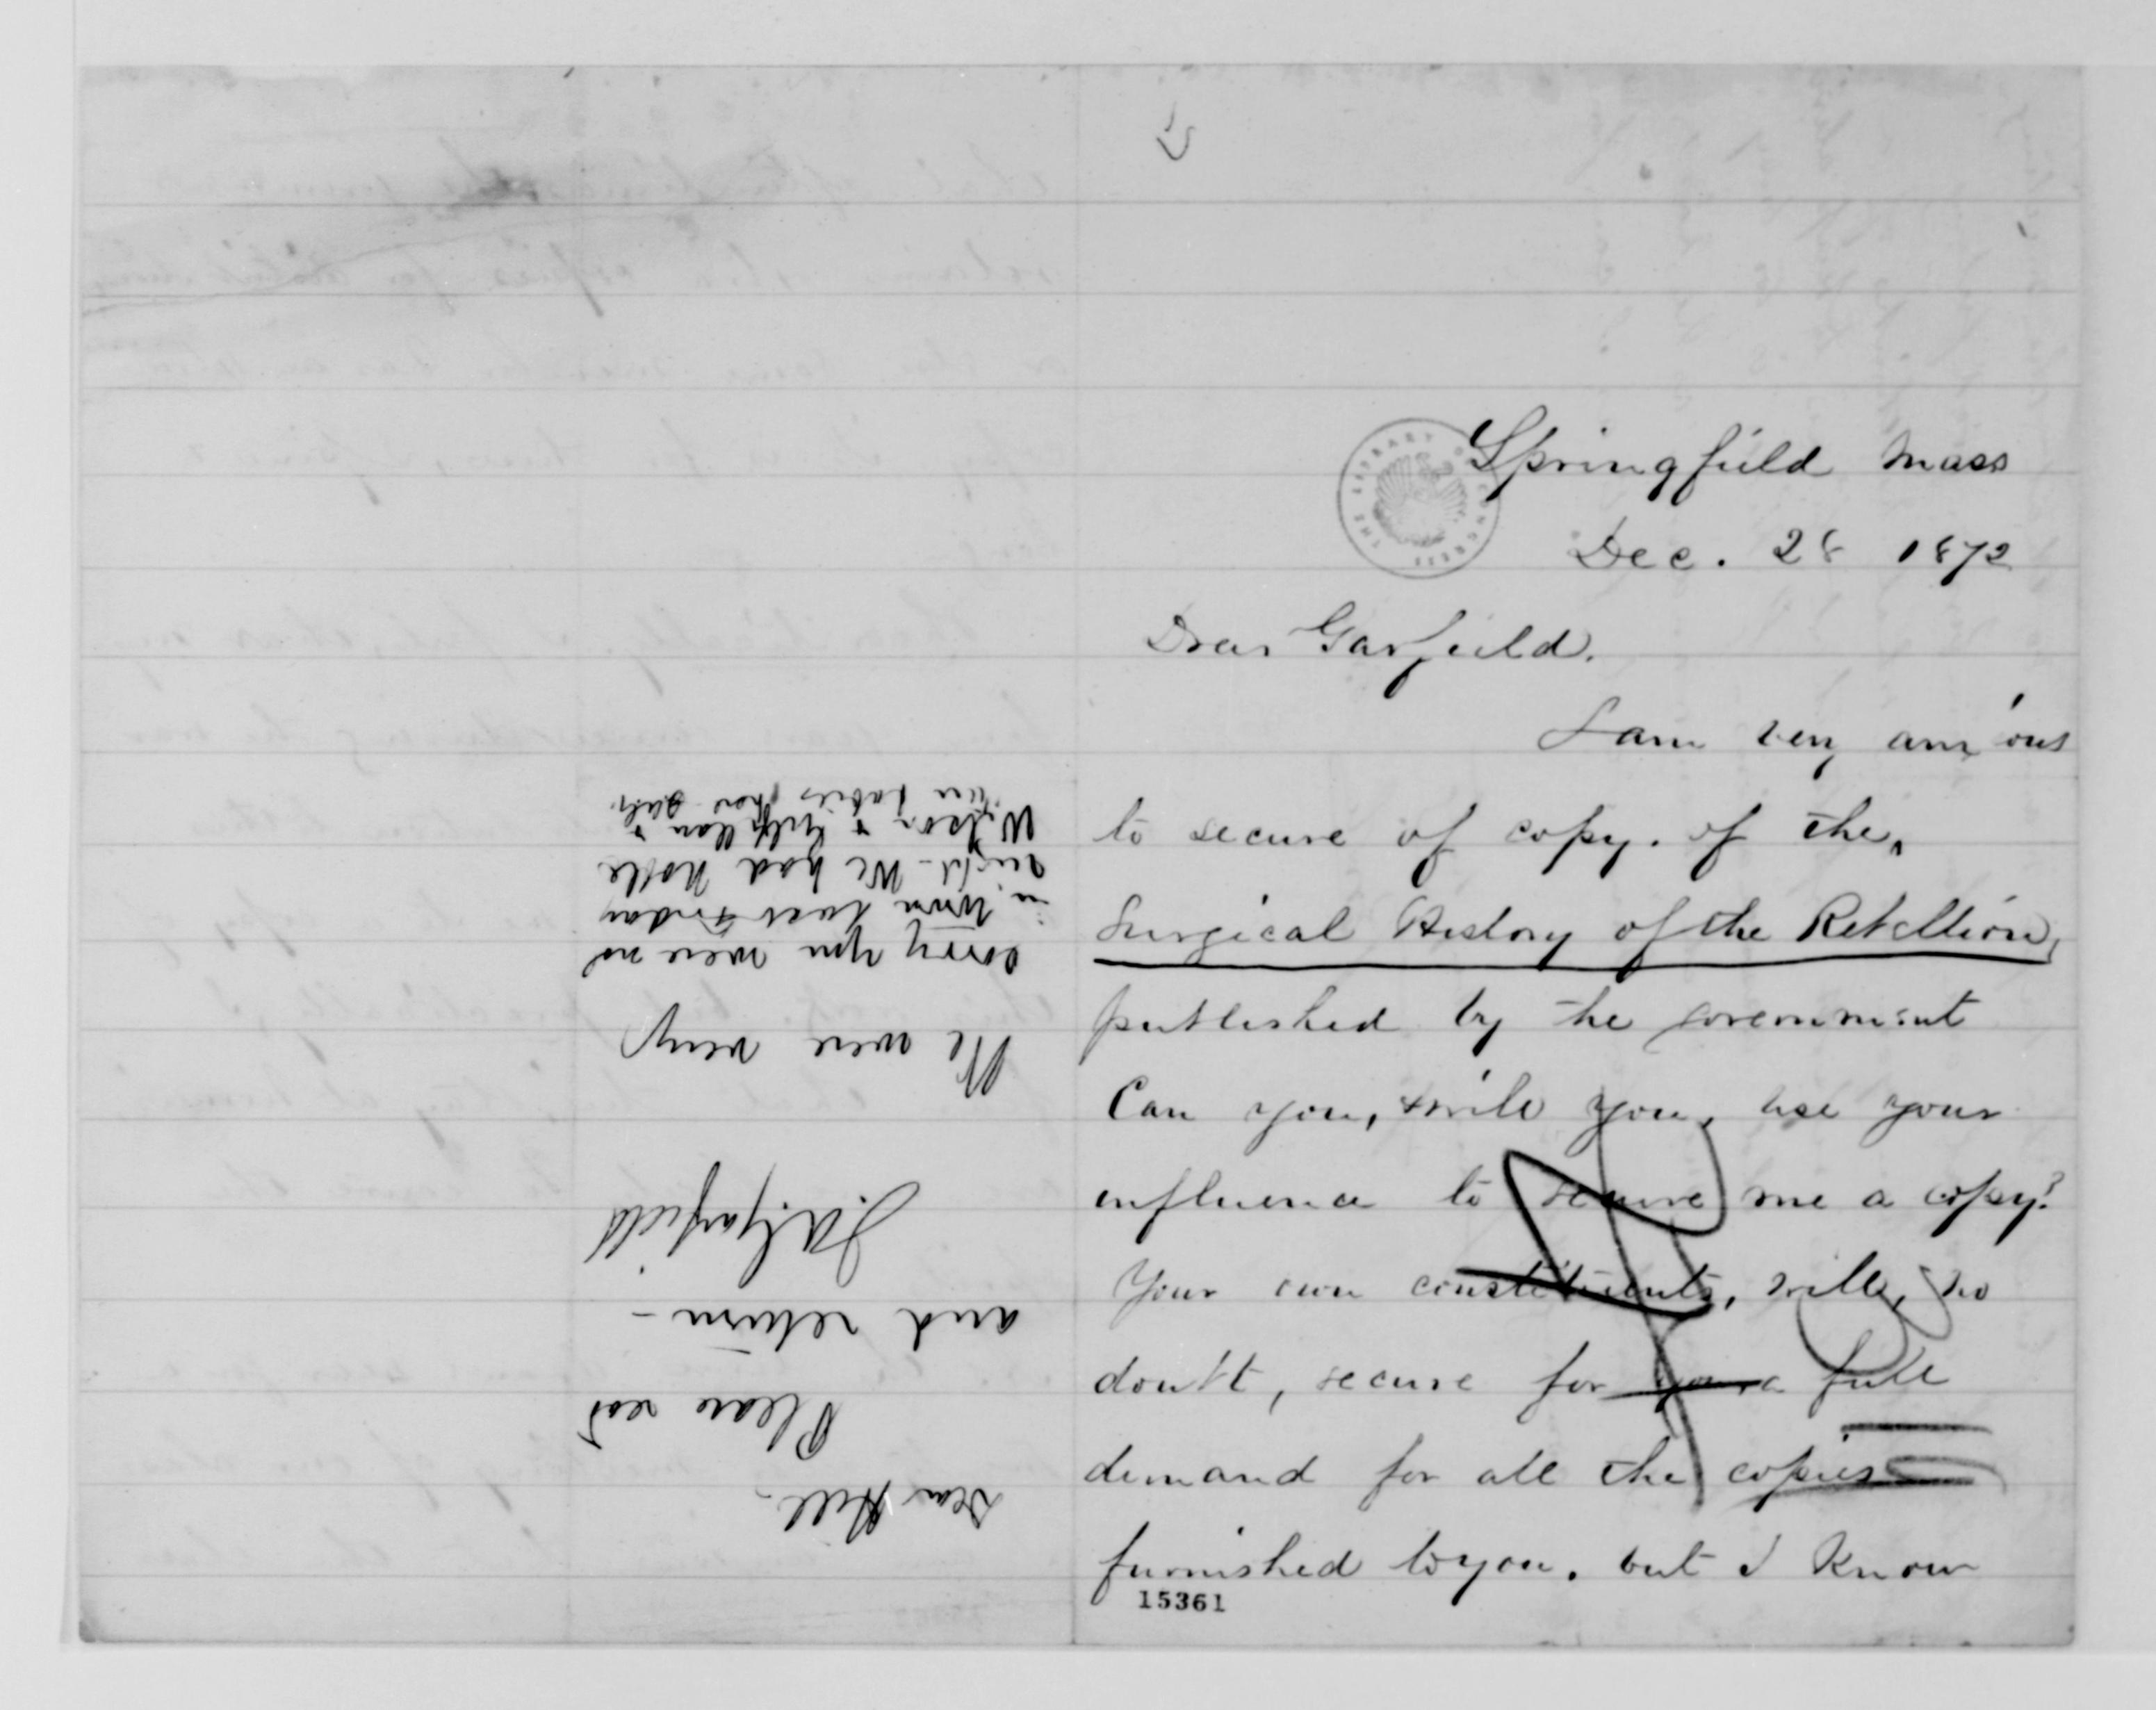 Springfield Mass
Dec. 28 1872
Dear Garfield.
I am very anxious
to secure of copy. of the
Surgical History of the Rebellion,
published by the government
Can you, & will you, use your
influence to secure me a copy?
Your own constituents, will, no
doubt, secure for you a full
demand for all the copies
furnished to you. but I know
15361
Dear Hall -
Please read
and return -
J. A. Garfield
We were very
sorry you were not
in town last Friday
night - We had Noble
Wilson & Gilfillan &
THE LIBRARY OF CONGRESS